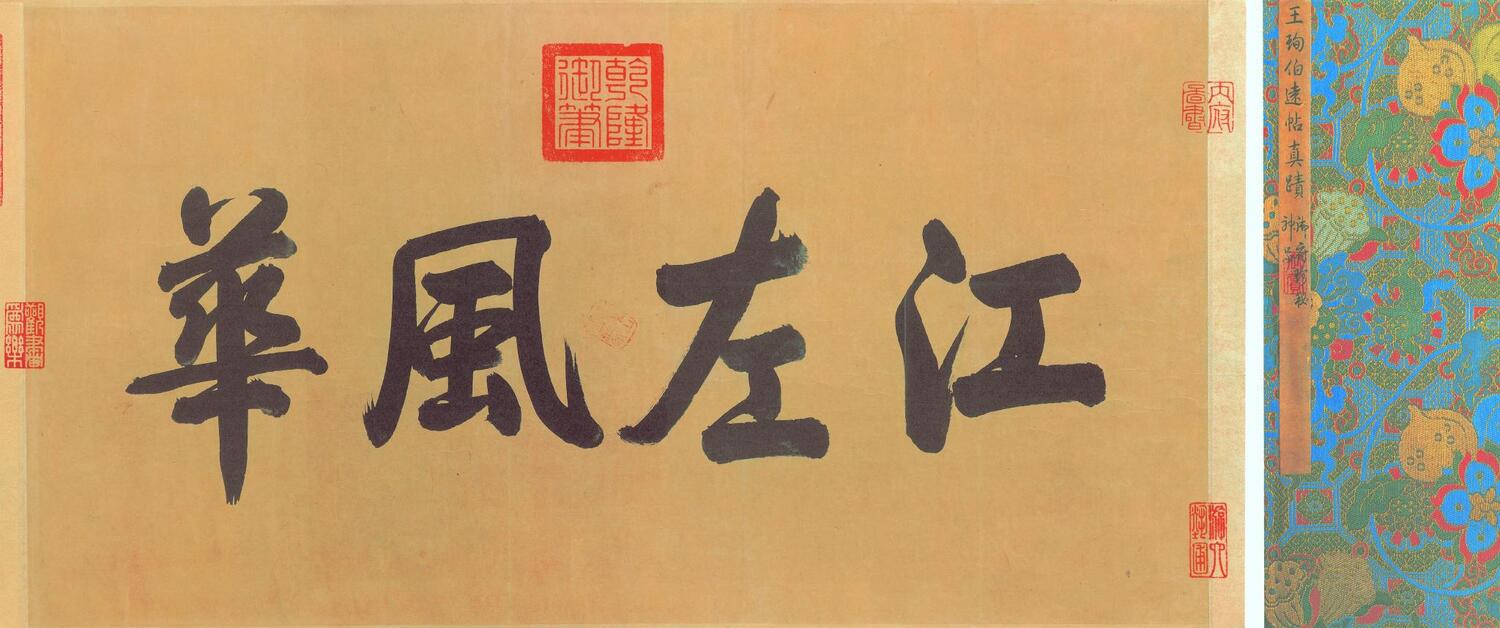 王珣伯遠帖真蹟
江左風華
乾隆御筆
內府圖書
觀書為樂